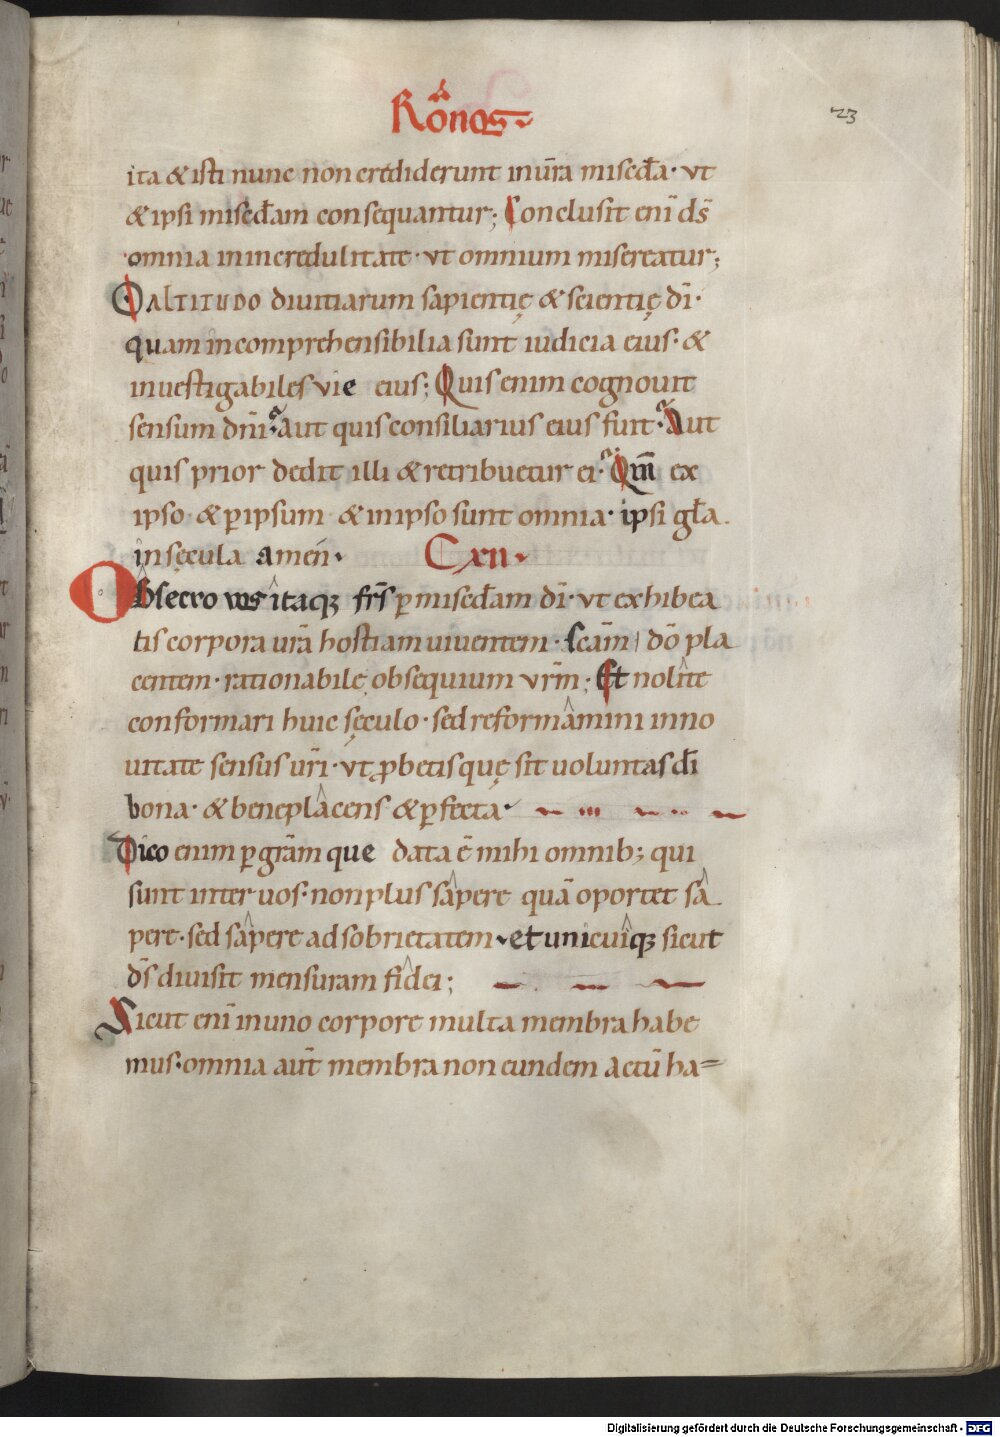 Rōnos
23
ita & isti nunc non crediderunt in ur̄am misc̄da· ut
& ipsi misc̄dam consequantur; Conclusit eni ds̄
omnia in incredulitate· ut omnium misereatur;
O ALTITUDO diuitiarum sapientię & scientię dī·
quam incomprehensibilia sunt iudicia eius· &
inuestigabiles vie eius; Quis enim cognouit
sensum dn̄i· Aut quis consiliarius eius fuit· Aut
quis prior dedit illi & retribuetur ei· Qm̄ ex
ipso & p̱ ipsum & in ipso sunt omnia· ipsi gl̄a.
in sęcula amen̄· C xii·
Obsecro vos itaq; frs̄ p̱ misc̄dam dī· ut exhibea
tis corpora ur̄a hostiam uiuentem· sc̄am dō pla
centem· rationabilę obsequium vr̄m; Et nolite
conformari huic sęculo· sed reformamini in no
uitate sensus ur̄i· ut ꝓbetis quę sit uoluntas dī
bona· & beneplacens & p̱fecta·
Dico enim p̱ gr̄am que data ē mihi omnib; qui
sunt inter uos· non plus sapere quā oportet sa
pere· sed sapere ad sobrietatem· et unicuiq; sicut
ds̄ diuisit mensuram fidei;
Sicut enī in uno corpore multa membra habe
mus· omnia aut̄ membra non eundem actū ha=
Digitalisierung gefördert durch die Deutsche Forschungsgemeinschaft - DFG